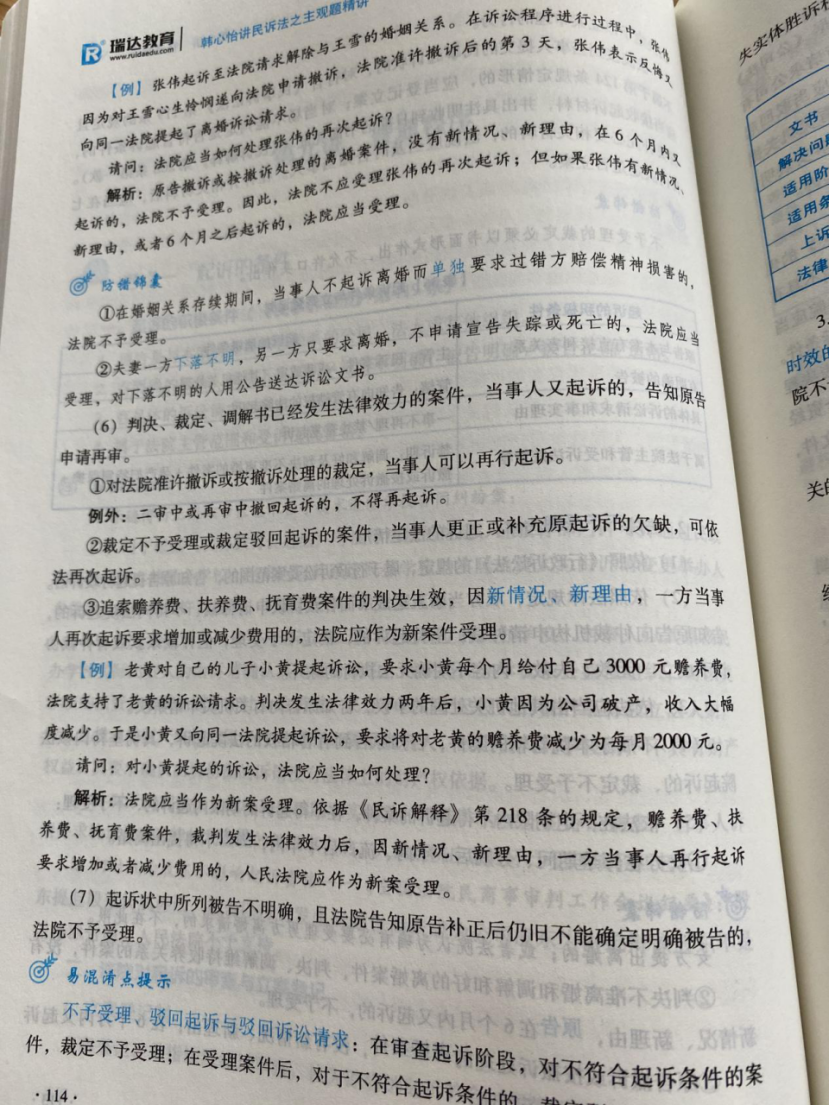 瑞达教育
www.ruidaedu.com
韩心怡讲民诉法之主观题精讲
【例】张伟起诉至法院请求解除与王雪的婚姻关系。在诉讼程序进行过程中，张伟
因为对王雪心生怜悯遂向法院申请撤诉，法院准许撤诉后的第3天，张伟表示反悔又
向同一法院提起了离婚诉讼请求。
请问：法院应当如何处理张伟的再次起诉？
解析：原告撤诉或按撤诉处理的离婚案件，没有新情况、新理由，在6个月内又
起诉的，法院不予受理。因此，法院不应受理张伟的再次起诉；但如果张伟有新情况、
新理由，或者6个月之后起诉的，法院应当受理。
防错锦囊
①在婚姻关系存续期间，当事人不起诉离婚而单独要求过错方赔偿精神损害的，
法院不予受理。
②夫妻一方下落不明，另一方只要求离婚，不申请宣告失踪或死亡的，法院应当
受理，对下落不明的人用公告送达诉讼文书。
（6）判决、裁定、调解书已经发生法律效力的案件，当事人又起诉的，告知原告
申请再审。
①对法院准许撤诉或按撤诉处理的裁定，当事人可以再行起诉。
例外：二审中或再审中撤回起诉的，不得再起诉。
②裁定不予受理或裁定驳回起诉的案件，当事人更正或补充原起诉的欠缺，可依
法再次起诉。
③追索赡养费、扶养费、抚育费案件的判决生效，因新情况、新理由，一方当事
人再次起诉要求增加或减少费用的，法院应作为新案件受理。
【例】老黄对自己的儿子小黄提起诉讼，要求小黄每个月给付自己3000元赡养费，
法院支持了老黄的诉讼请求。判决发生法律效力两年后，小黄因为公司破产，收入大幅
度减少。于是小黄又向同一法院提起诉讼，要求将对老黄的赡养费减少为每月2000元。
请问：对小黄提起的诉讼，法院应当如何处理？
解析：法院应当作为新案受理。依据《民诉解释》第218条的规定，赡养费、扶
养费、抚育费案件，裁判发生法律效力后，因新情况、新理由，一方当事人再行起诉
要求增加或者减少费用的，人民法院应作为新案受理。
（7）起诉状中所列被告不明确，且法院告知原告补正后仍旧不能确定明确被告的，
法院不予受理。
易混淆点提示
不予受理、驳回起诉与驳回诉讼请求：在审查起诉阶段，对不符合起诉条件的案
件，裁定不予受理；在受理案件后，对于不符合起诉条件的
·114·
失实体胜诉
文书
解决问
适用阶
适用条
上诉
法律
3.
时效的
院不
关的